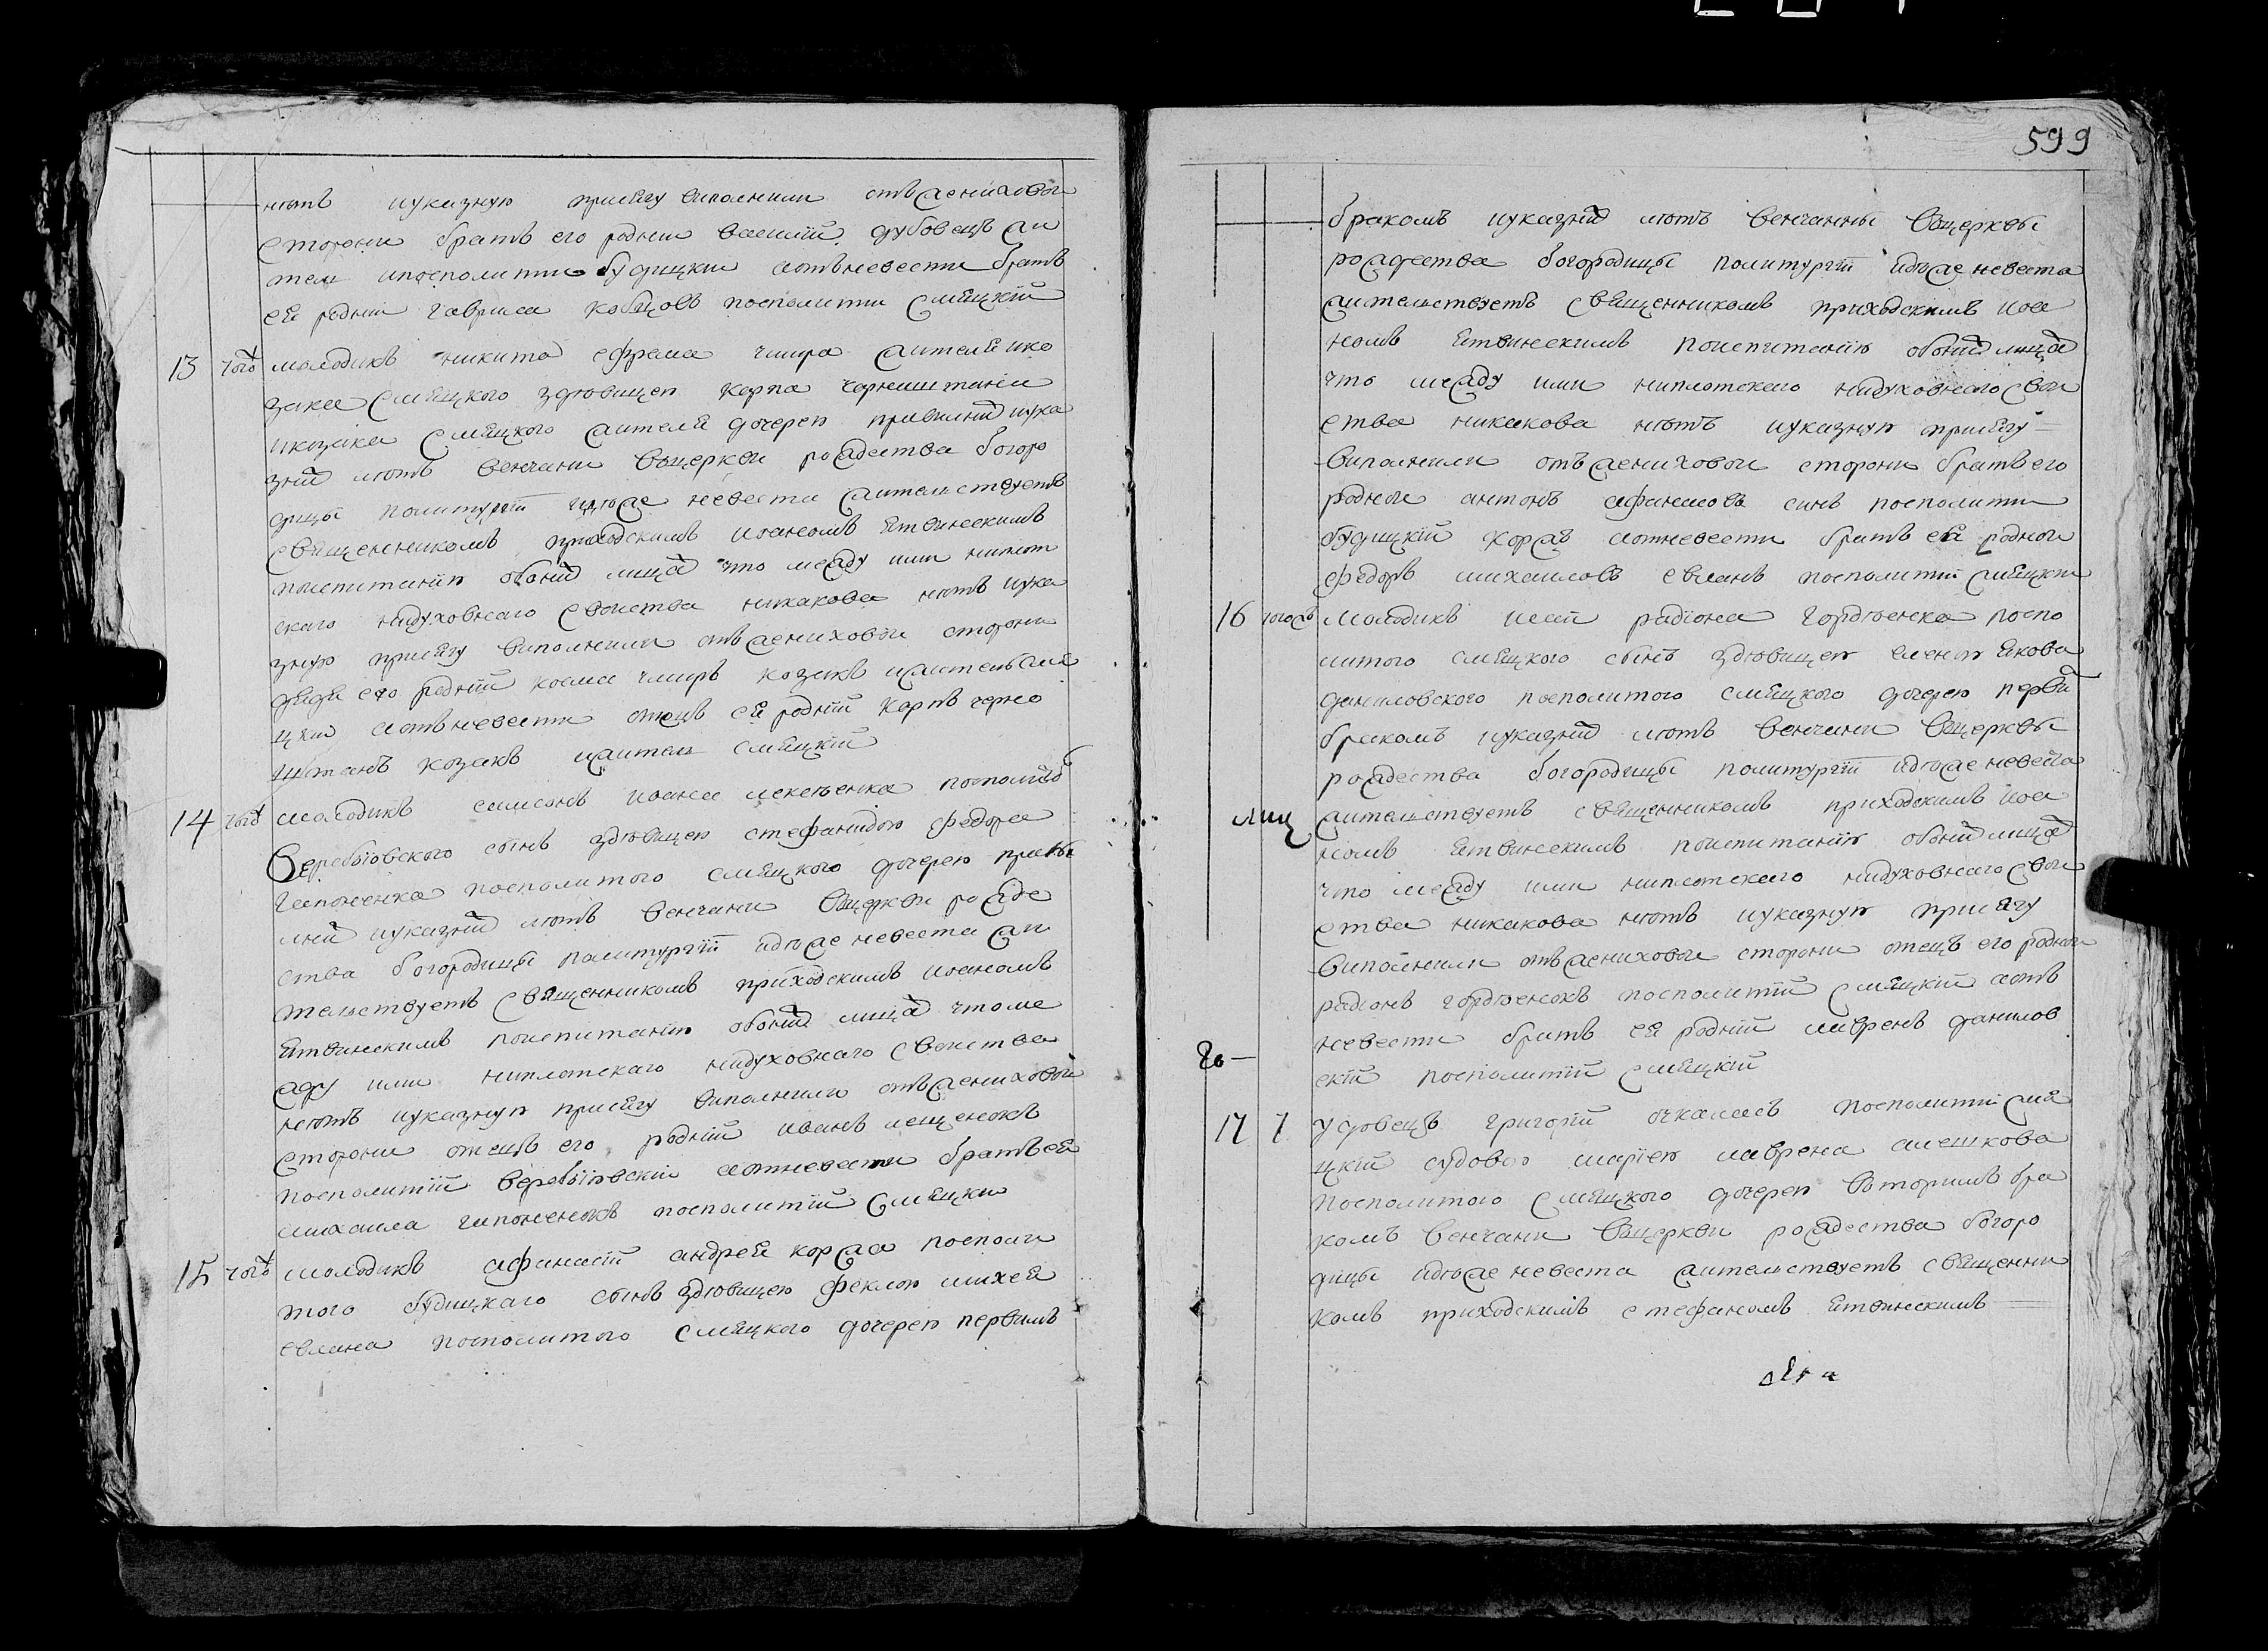 нѣтъ иуказную присягу виполнили отъ жениховои
сторони братъ его роднии василий дубовецъ жи
тел ипосполити будицкии аотъневести братъ
ея родни гаврила кобцовъ посполити смяцкий
13 тогож молодикъ никита ефрема чмира жителя ико
зака смяцкого здѣвицею карпа чорноштана
икозака смяцкого жителя дочерею правилний иука
зний лѣтъ венчани вцеркви рождества богоро
дици политургий идѣже невеста жительствуетъ
священникомъ приходскимъ иоаномъ Ятвинскимъ
поиспитанию обоихъ лицъ что между ими ниплот
скаго нидуховнаго своиства никакова нѣтъ иука
зную присягу виполнили отъ жениховои сторони
дядя его родний косма чмиръ козакъ ижитель смя
цкий аотъневести отецъ ея родний карпъ черно
штанъ козакъ ижитель смяцкий
14 тогож молодикъ самсонъ иоанна посполитого
веребиовского синъ здѣвицею стефанидою федора
гапоненка посполитого смяцкого дочерею правы
лний иуказний лѣтъ венчани вцеркви рожде
ства богородици политургий идѣже невеста жи
тельствуетъ священникомъ приходскимъ иоаномъ
Ятвинскимъ поиспитанию обоихъ лицъ что ме
жду ими ниплотскаго нидуховнаго своиства
нѣтъ иуказную присягу виполнили отъ жениховои
сторони отецъ его родний иванъ
посполитий веребиовский аотневести братъ ея
михаила гапоненокъ посполитий смяцки
15 тогож молодикъ афанасий андрея коржа посполи
того будицкаго синъ здѣвицею феклою михея
евлана посполитого смяцкого дочерею первимъ
599
бракомъ иуказний лѣтъ венчанны вцеркви
рождества богородици политургий идѣже невеста
жительствуетъ священникомъ приходскимъ иоа
номъ Ятвинскимъ поиспитанию обоихъ лицъ
что между ими ниплотскаго нидуховнаго свои
ства никакова нѣтъ иуказную присягу
виполнили отъ жениховои сторони братъ его
роднои антонъ афанасовъ синъ посполити
будицкий коржъ аотневести братъ ея роднои
федоръ михаиловъ евланъ посполитий смяцкии
16 тогожъ молодикъ исай радиона гордѣенка поспо
литого смяцкого синъ здѣвицею еленою якова
даниловского посполитого смяцкого дочерею первий
бракомъ иуказний лѣтъ венчани вцеркви
рождества богородици политургий идѣже невеста
лиц жительствуетъ священникомъ приходскимъ иоа
номъ Ятвинскимъ поиспитанию обоихъ лицъ
что между ими ниплотскаго нидуховнаго свои
ства никакова нѣтъ иуказную присягу
виполнили отъ жениховои сторони отецъ его роднои
радионъ гордѣенокъ посполитий смяцкий аотъ
невести братъ ея родний лавренъ данилов
ский посполитий смяцкий
17 7 удовецъ григорий очкаласъ посполити смя
цкий судовою мариею лаврена алешкова
посполитого смяцкого дочерею вторимъ бра
комъ венчани вцеркви рождества богоро
дици идѣже невеста жительствуетъ священни
комъ приходскимъ стефаномъ Ятвинскимъ